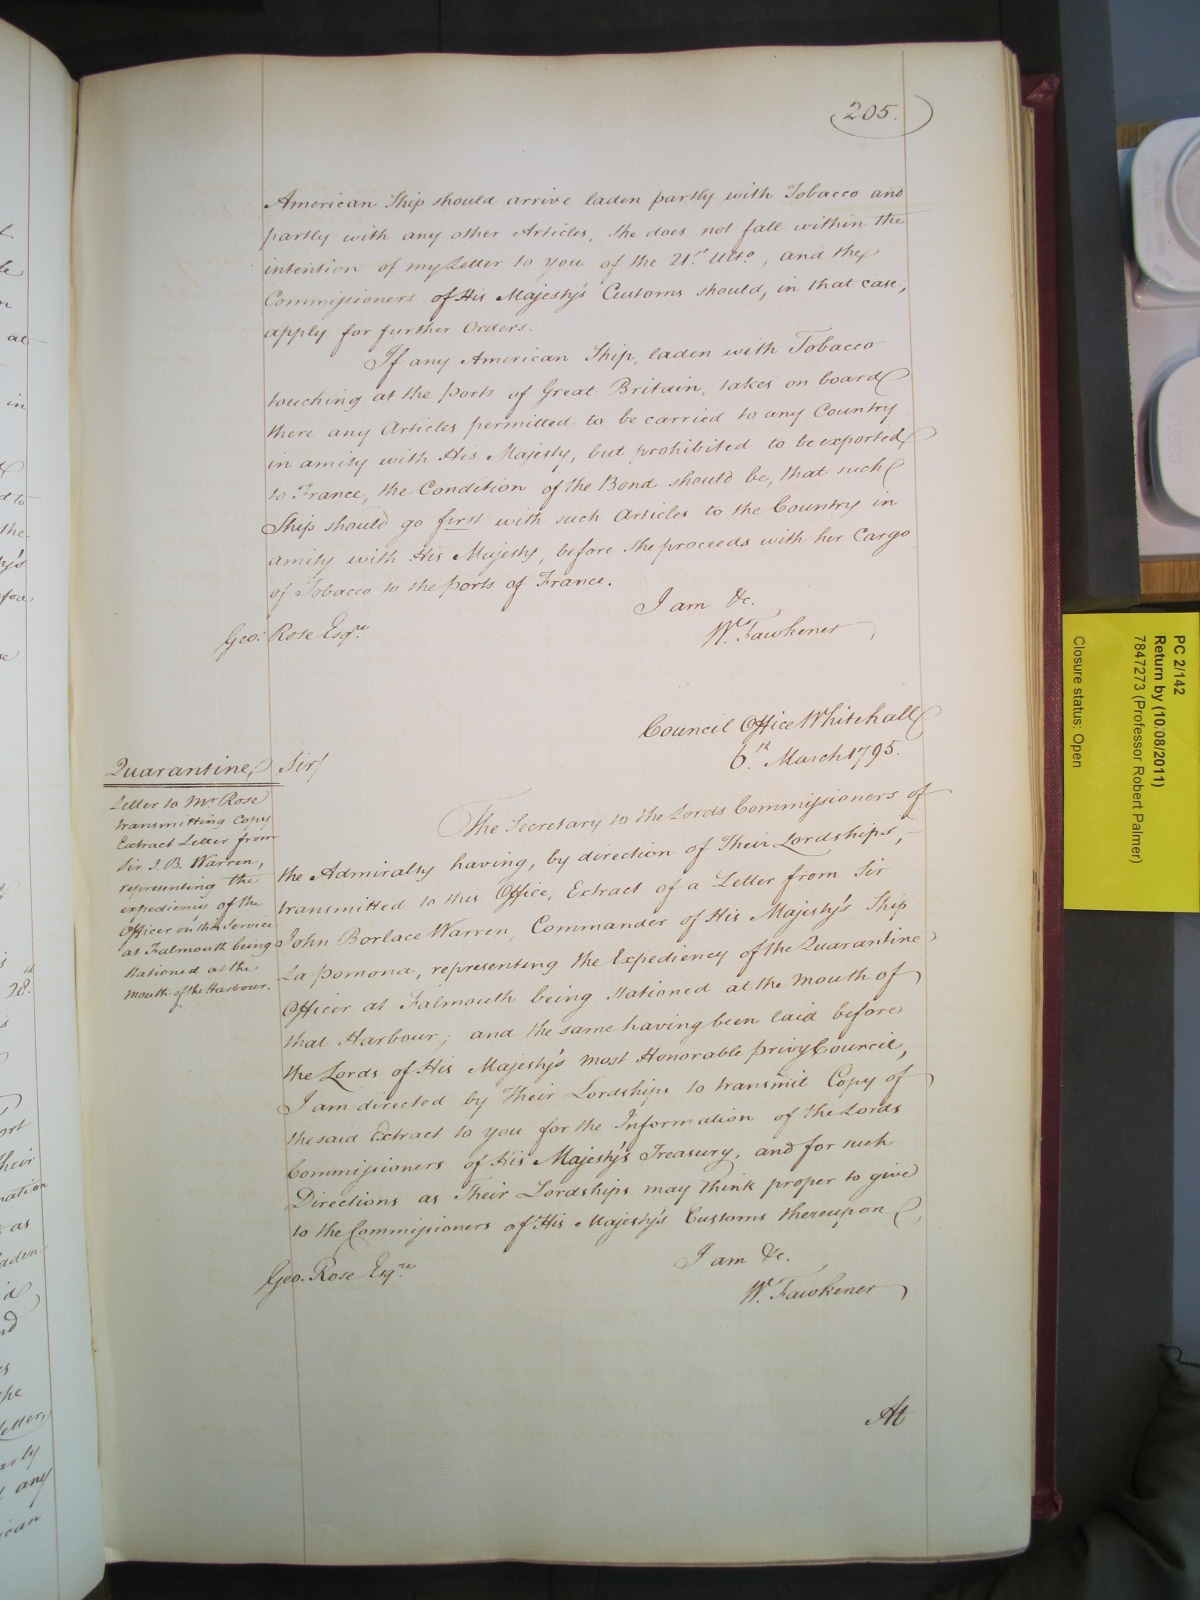 205.
American Ship should arrive laden partly with Tobacco and
partly with any other Articles, She does not fall within the
intention of my Letter to you of the 21st. Ulto, and the
Commissioners of His Majesty's Customs should, in that case,
apply for further Orders.
If any American Ship, laden with Tobacco
touching at the Ports of Great Britain, takes on board
there any Articles permitted to be carried to any Country
in amity with His Majesty, but prohibited to be exported
to France, the Condition of the Bond should be, that such
Ship should go first with such Articles to the Country in
amity with His Majesty, before She proceeds with her Cargo
of Tobacco to the Ports of France.
I am &c.
Geo: Rose Esqre.
W. Fawkener
Council Office Whitehall
6.th March 1795.
Quarantine
Letter to Mr Rose
transmitting Copy
Extract Letter from
Sir J. B. Warren,
representing the
expediency of the
Officer on this Service
at Falmouth being
Stationed at the
mouth of the Harbour.
Sir
The Secretary to the Lords Commissioners of
the Admiralty having, by direction of Their Lordships,
transmitted to this Office, Extract of a Letter from Sir
John Borlace Warren, Commander of His Majesty's Ship
La Pomona, representing the Expediency of the Quarantine
Officer at Falmouth being Stationed at the mouth of
that Harbour; and the same having been laid before
the Lords of His Majesty's most Honorable Privy Council,
I am directed by Their Lordships to transmit Copy of
the said Extract to you for the Information of the Lords
Commissioners of His Majesty's Treasury, and for such
Directions as Their Lordships may think proper to give
to the Commissioners of His Majesty's Customs thereupon
I am &c.
Geo. Rose Esqre.
W. Fawkener
At
PC 2/142
Return by (10/08/2011)
7847273 (Professor Robert Palmer)
Closure status: Open